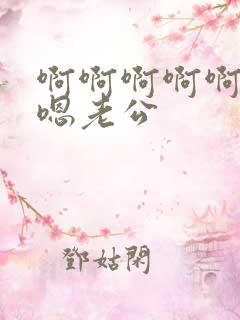 啊啊啊啊啊
嗯老公
鄧姑閑